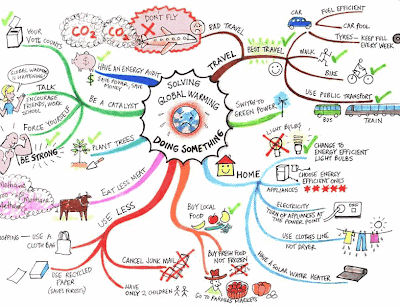 SOLVING
GLOBAL WARMING
DOING SOMETHING
YOUR
VOTE COUNTS
CO2
CO2
DON'T FLY
BAD TRAVEL
TRAVEL
BEST TRAVEL
CAR
FUEL EFFICIENT
CAR POOL
TYRES - KEEP FULL
EVERY WEEK
WALK
BIKE
USE PUBLIC TRANSPORT
BUS
TRAIN
SWITCH TO
GREEN POWER
HOME
LIGHT BULBS?
CHANGE TO
ENERGY EFFICIENT
LIGHT BULBS
APPLIANCES
CHOOSE ENERGY
EFFICIENT ONES
ELECTRICITY
TURN OFF APPLIANCES AT
THE POWER POINT
USE CLOTHES LINE
NOT DRYER
HAVE A SOLAR WATER HEATER
BUY LOCAL
FOOD
BUY FRESH FOOD
NOT FROZEN
GO TO FARMERS MARKETS
USE LESS
CANCEL JUNK MAIL
HAVE
ONLY 2 CHILDREN
USE RECYCLED
PAPER
(SAVES FORESTS)
SHOPPING - USE A
CLOTH BAG
EAT LESS MEAT
Methane
Methane
PLANT TREES
BE A CATALYST
HAVE AN ENERGY AUDIT
SAVE POWER, SAVE
MONEY
GLOBAL WARMING
IS HAPPENING
TALK
ENCOURAGE
FRIENDS, WORK
SCHOOL
FORCE YOURSELF
BE STRONG